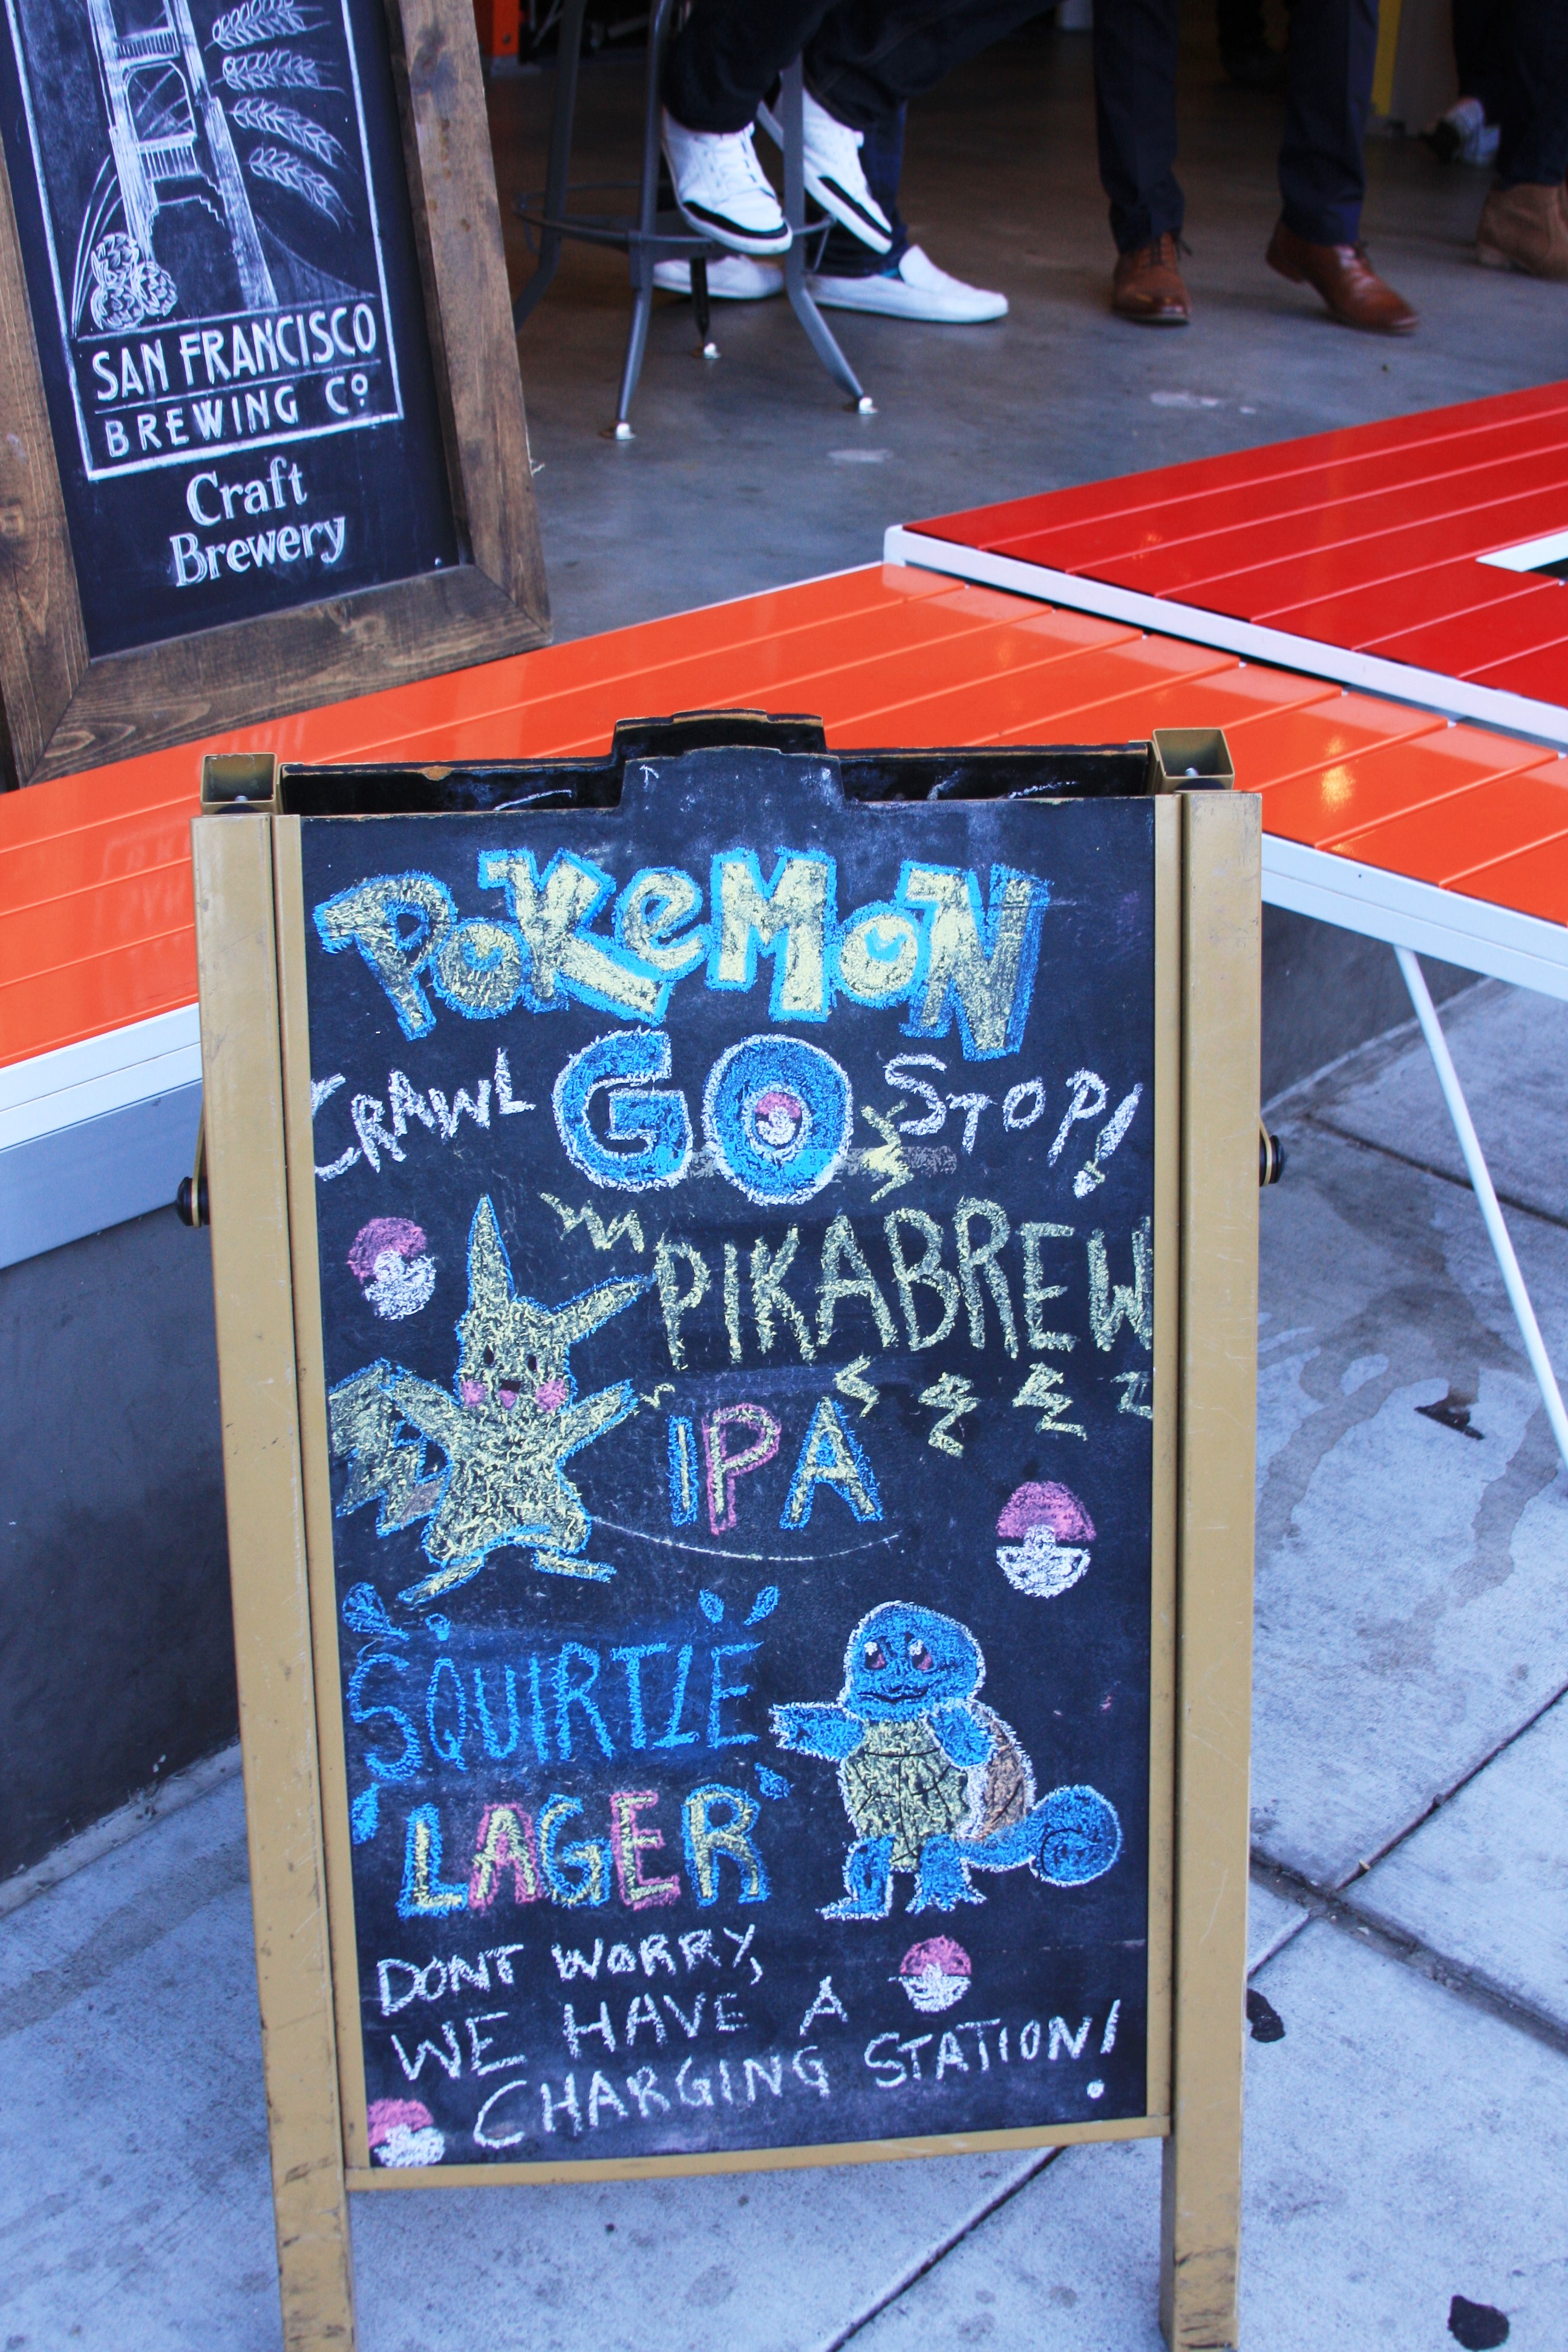 SAN FRANCISCO
BREWING Cº
Craft
Brewery
POKeMON
CRAWL GO STOP!
PIKABREW
IPA
SQUIRTLE
LAGER
DONT WORRY,
WE HAVE A
CHARGING STATION!